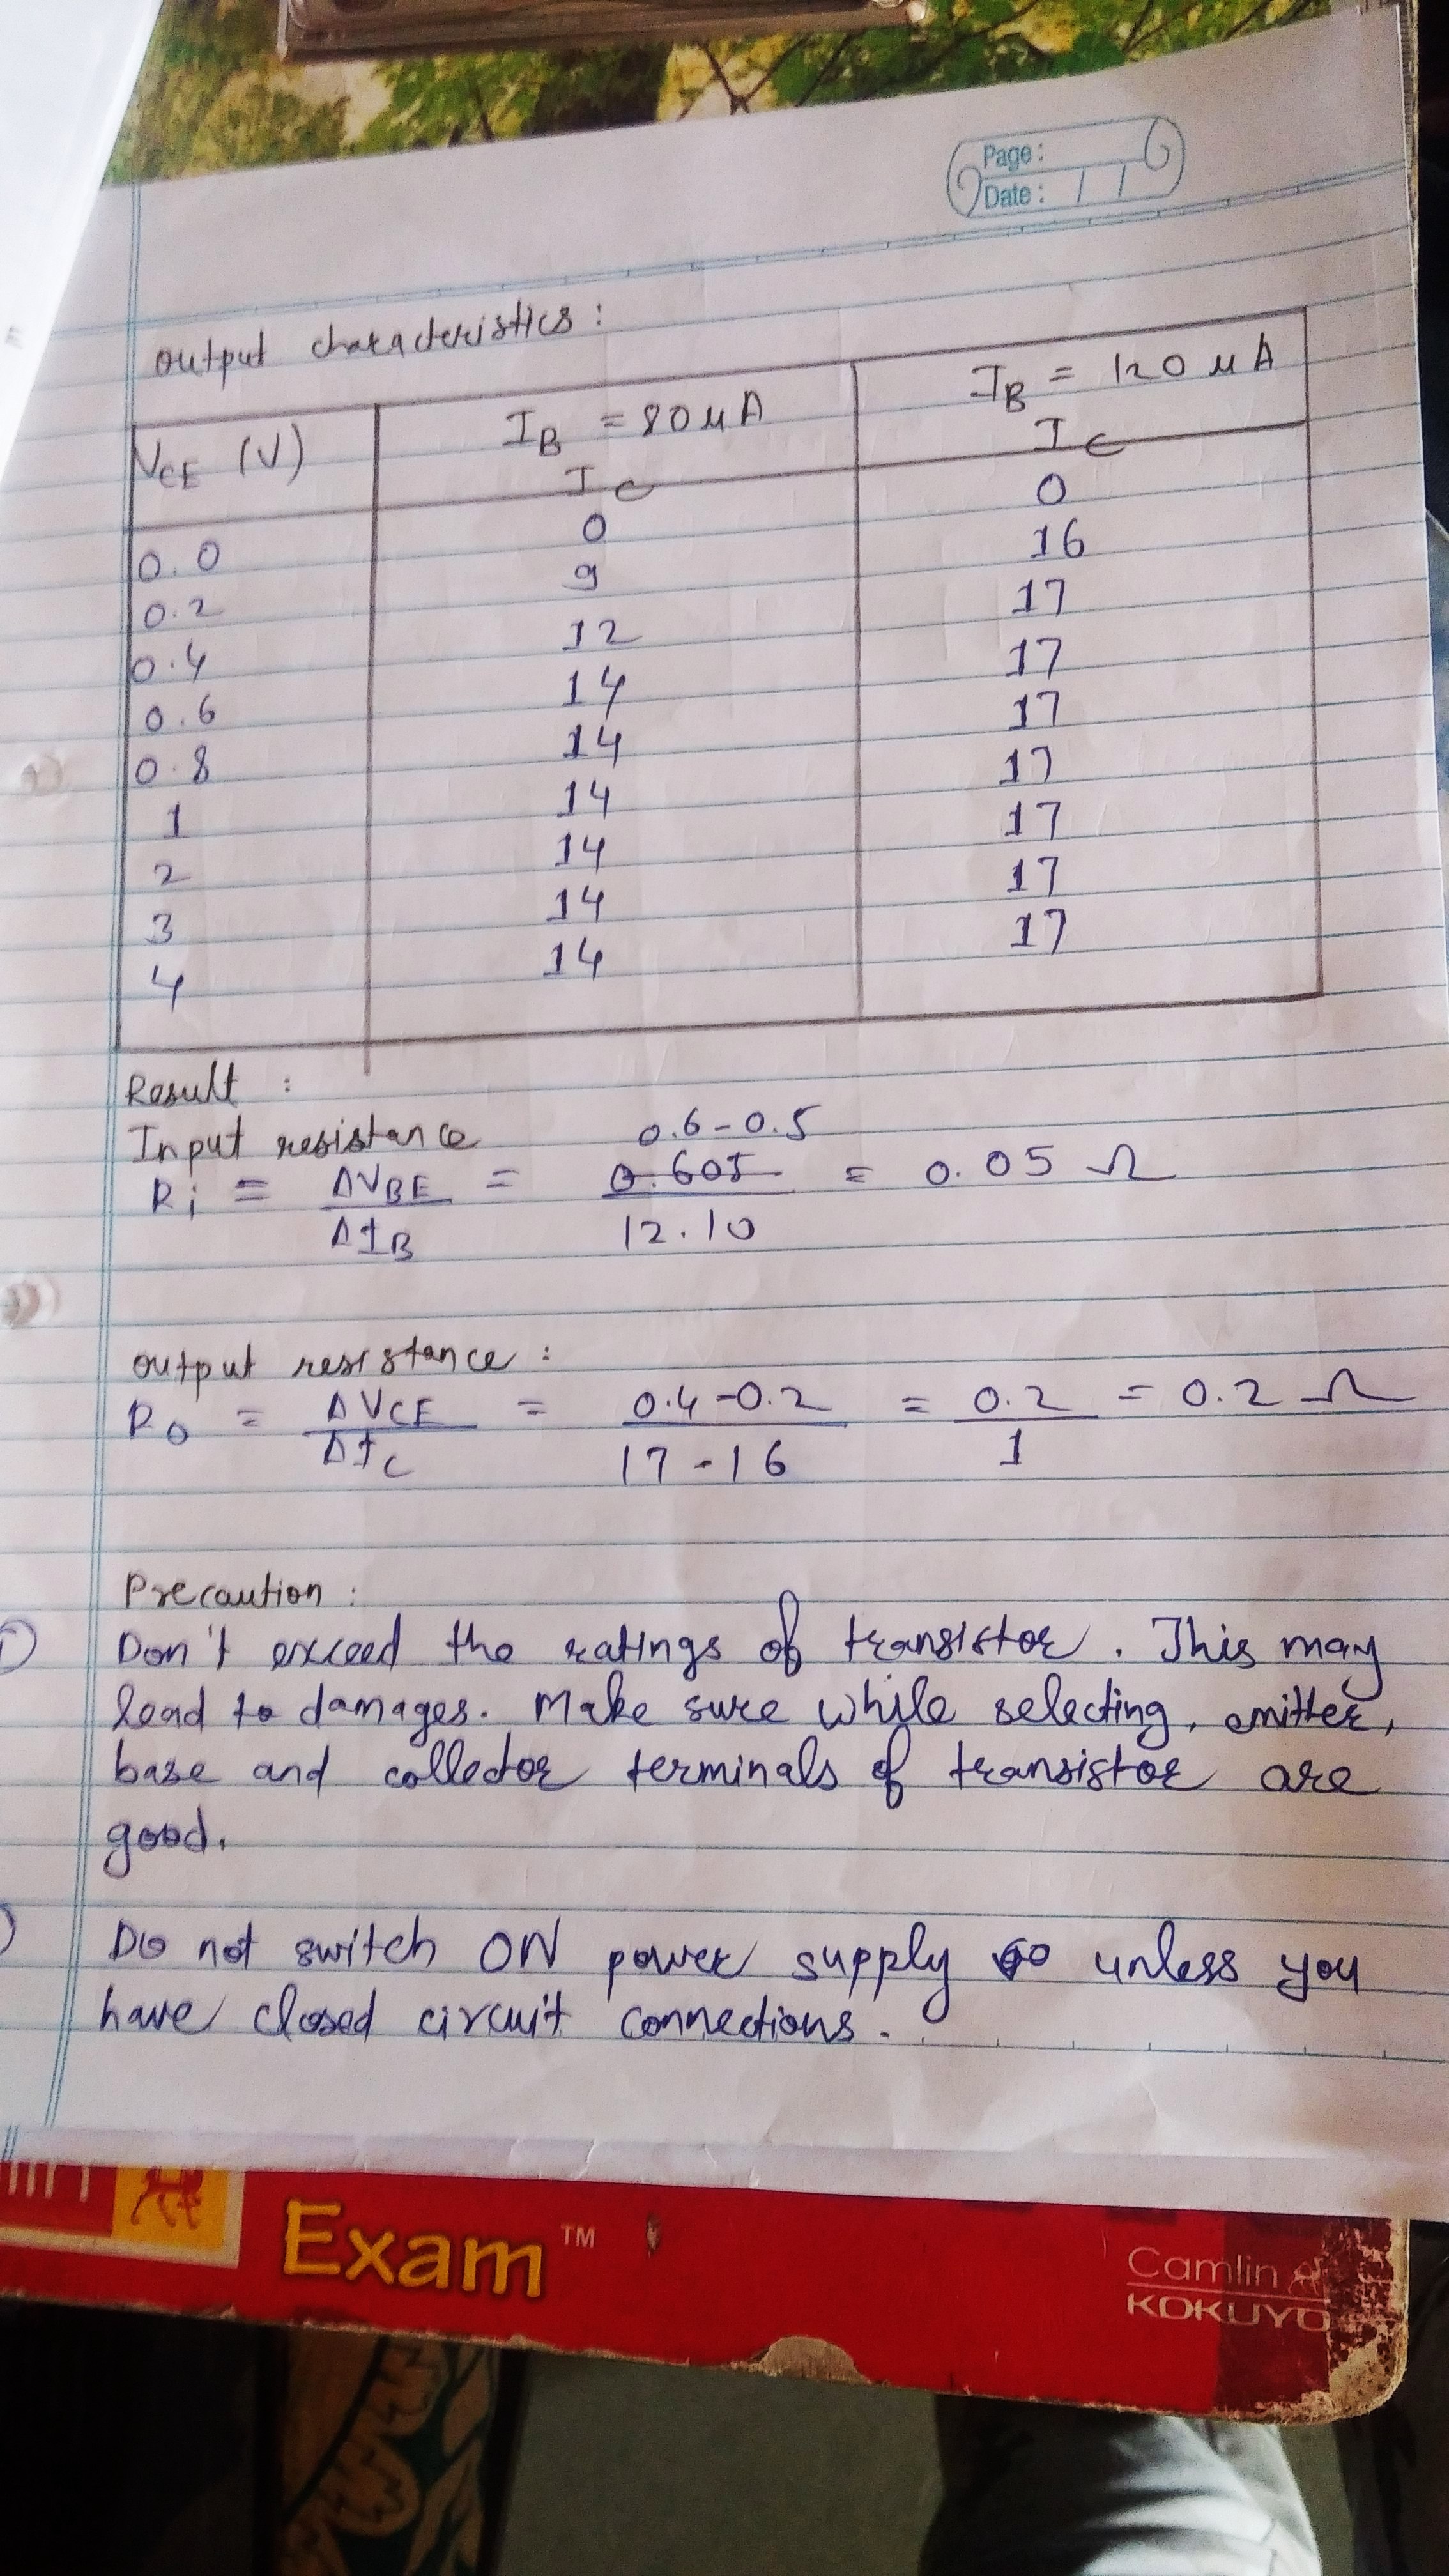 Page:
Date: / /
output characteristics:
VCE (V) IB = 80 μA IB = 120 μA
IC IC
0.0 0 0
0.2 9 16
0.4 12 17
0.6 14 17
0.8 14 17
1 14 17
2 14 17
3 14 17
4 14 17
Result :
Input resistance 0.6-0.5
Ri = ΔVBE / ΔIB = 0.605 / 12.10 = 0.05 Ω
output resistance :
RO = ΔVCE / ΔIC = 0.4-0.2 / 17-16 = 0.2 / 1 = 0.2 Ω
Precaution :
Don't exceed the ratings of transistor. This may
lead to damages. Make sure while selecting, emitter,
base and collector terminals of transistor are
good.
Do not switch ON power supply unless you
have closed circuit connections.
Exam™
Camlin
KOKUYO